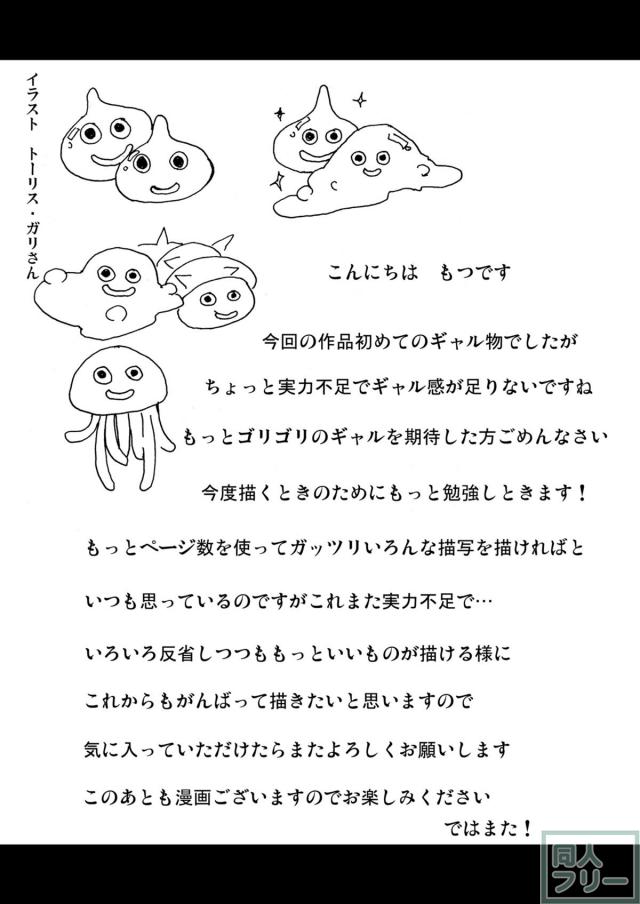 イラスト　トーリス・ガリさん
こんにちは　もつです
今回の作品初めてのギャル物でしたが
ちょっと実力不足でギャル感が足りないですね
もっとゴリゴリのギャルを期待した方ごめんなさい
今度描くときのためにもっと勉強しときます！
もっとページ数を使ってガッツリいろんな描写を描ければと
いつも思っているのですがこれまた実力不足で…
いろいろ反省しつつももっといいものが描ける様に
これからもがんばって描きたいと思いますので
気に入っていただけたらまたよろしくお願いします
このあとも漫画ございますのでお楽しみください
ではまた！
同人
フリー